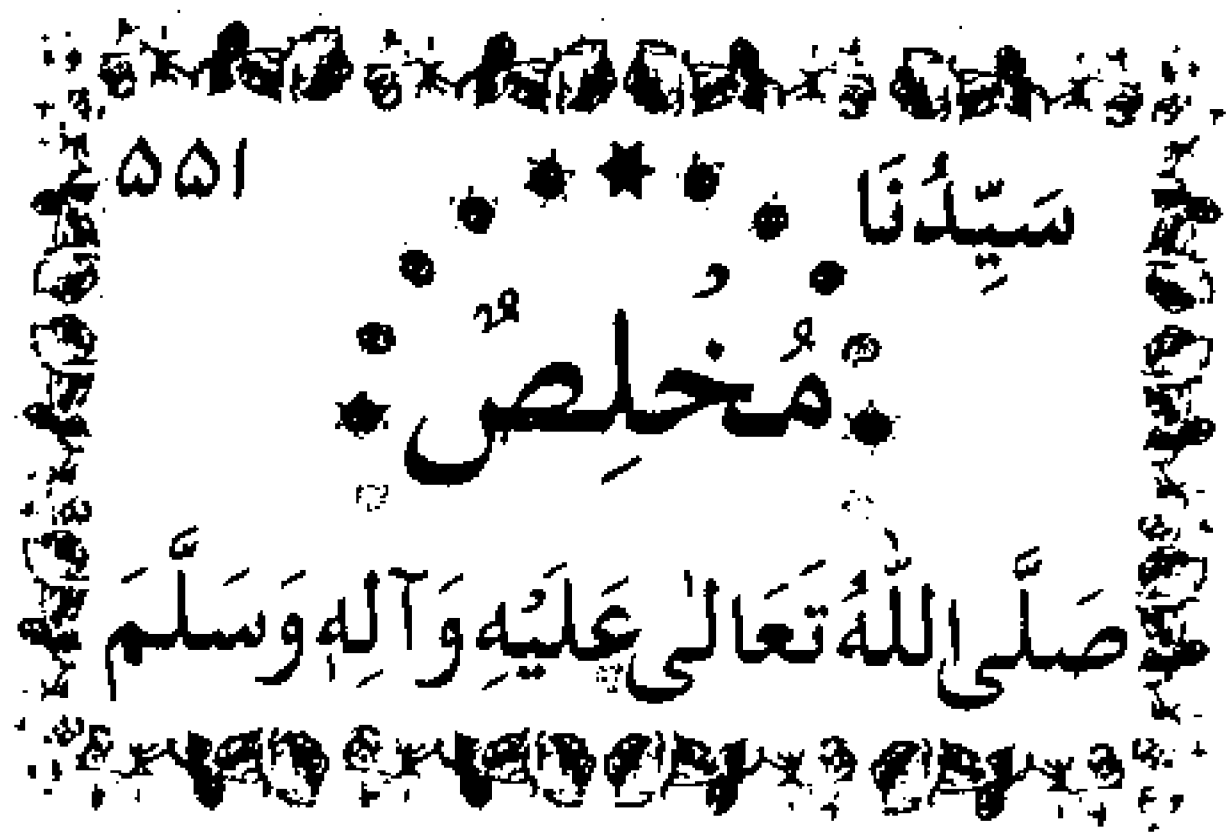 سَيِّدُنَا ۵۵۱
مُخْلِصٌ
صَلَّى اللّٰهُ تَعَالٰى عَلَيْهِ وَآلِهٖ وَسَلَّمَ